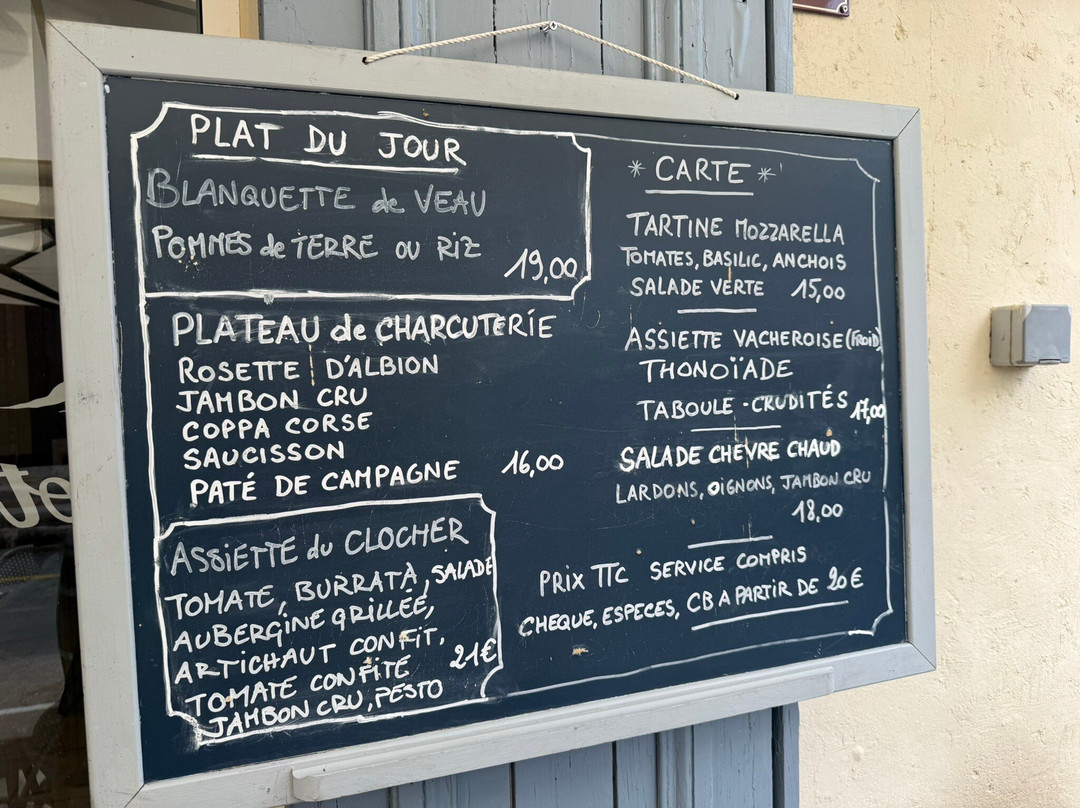 PLAT DU JOUR
BLANQUETTE de VEAU
POMMES de TERRE OU RIZ
19,00
PLATEAU de CHARCUTERIE
ROSETTE D'ALBION
JAMBON CRU
COPPA CORSE
SAUCISSON
PATÉ DE CAMPAGNE 16,00
ASSIETTE du CLOCHER
TOMATE, BURRATA, SALADE
AUBERGINE GRILLÉE,
ARTICHAUT CONFIT,
TOMATE CONFITE 21€
JAMBON CRU, PESTO
* CARTE *
TARTINE MOZZARELLA
TOMATES, BASILIC, ANCHOIS
SALADE VERTE 15,00
ASSIETTE VACHEROISE (FROID)
THONOÏADE
TABOULE - CRUDITÉS 17,00
SALADE CHEVRE CHAUD
LARDONS, OIGNONS, JAMBON CRU
18,00
PRIX TTC SERVICE COMPRIS
CHEQUE, ESPECES, CB A PARTIR DE 20€